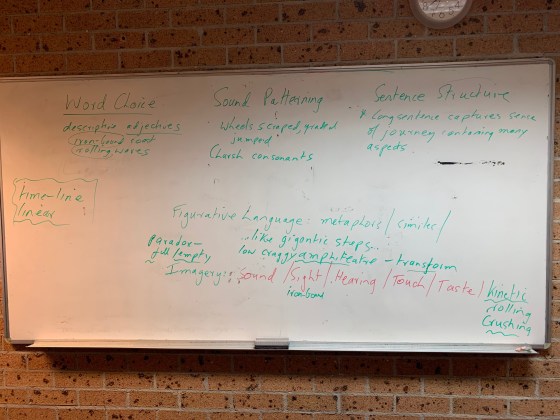 Word Choice
descriptive adjectives
iron-bound
rolling waves
Sound Patterning
wheels scraped, grated
jumped
(harsh consonants
Sentence Structure
* long sentence captures sense
of journey containing many
aspects.
time-line
linear
Figurative Language: metaphors / similes /
paradox-
full/empty
...like gigantic steps...
low craggy amphiteatre - transform
Imagery: Sound / Sight / Hearing / Touch / Taste /
iron-bound
Kinetic
rolling
Crushing